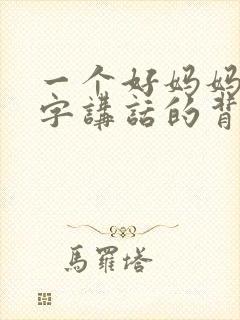 一个好妈妈
字講話的背
馬羅塔